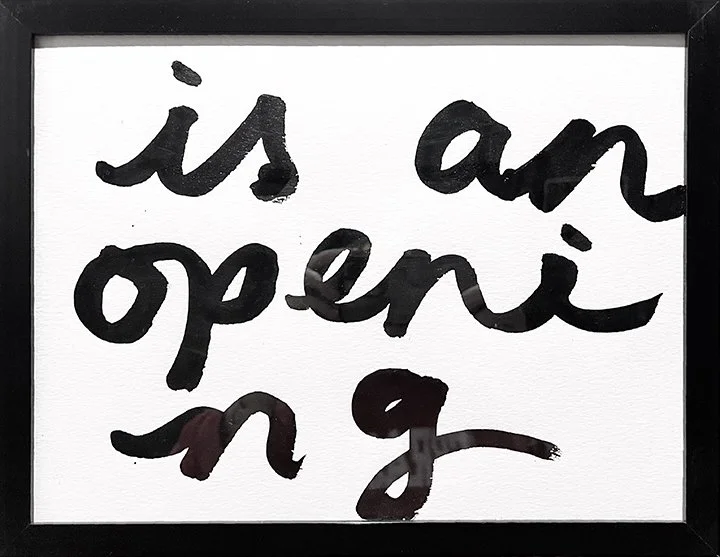 is an
openi
ng